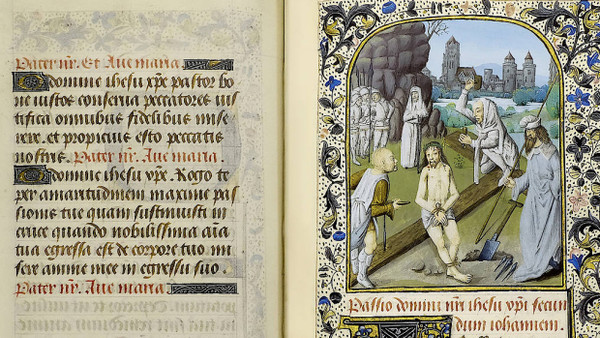 Pater nr̄. Et Aue maria.
O domine ihesu xp̄e pastor bo
ne iustos conserua peccatores ius
tifica omnibus fidelibus mise
rere. et propicius esto peccatis
nostris. Pater nr̄. Aue maria.
O domine ihesu xp̄e. Rogo te
per amaritudinem maxime pas
sionis tue quam sustinuisti in
cruce quando nobilissima aīa
tua egressa est de corpore tuo mi
sere anime mee in egressu suo.
Pater nr̄. Aue maria.
Passio domini nr̄i ihesu xp̄i secun
dum iohannem.